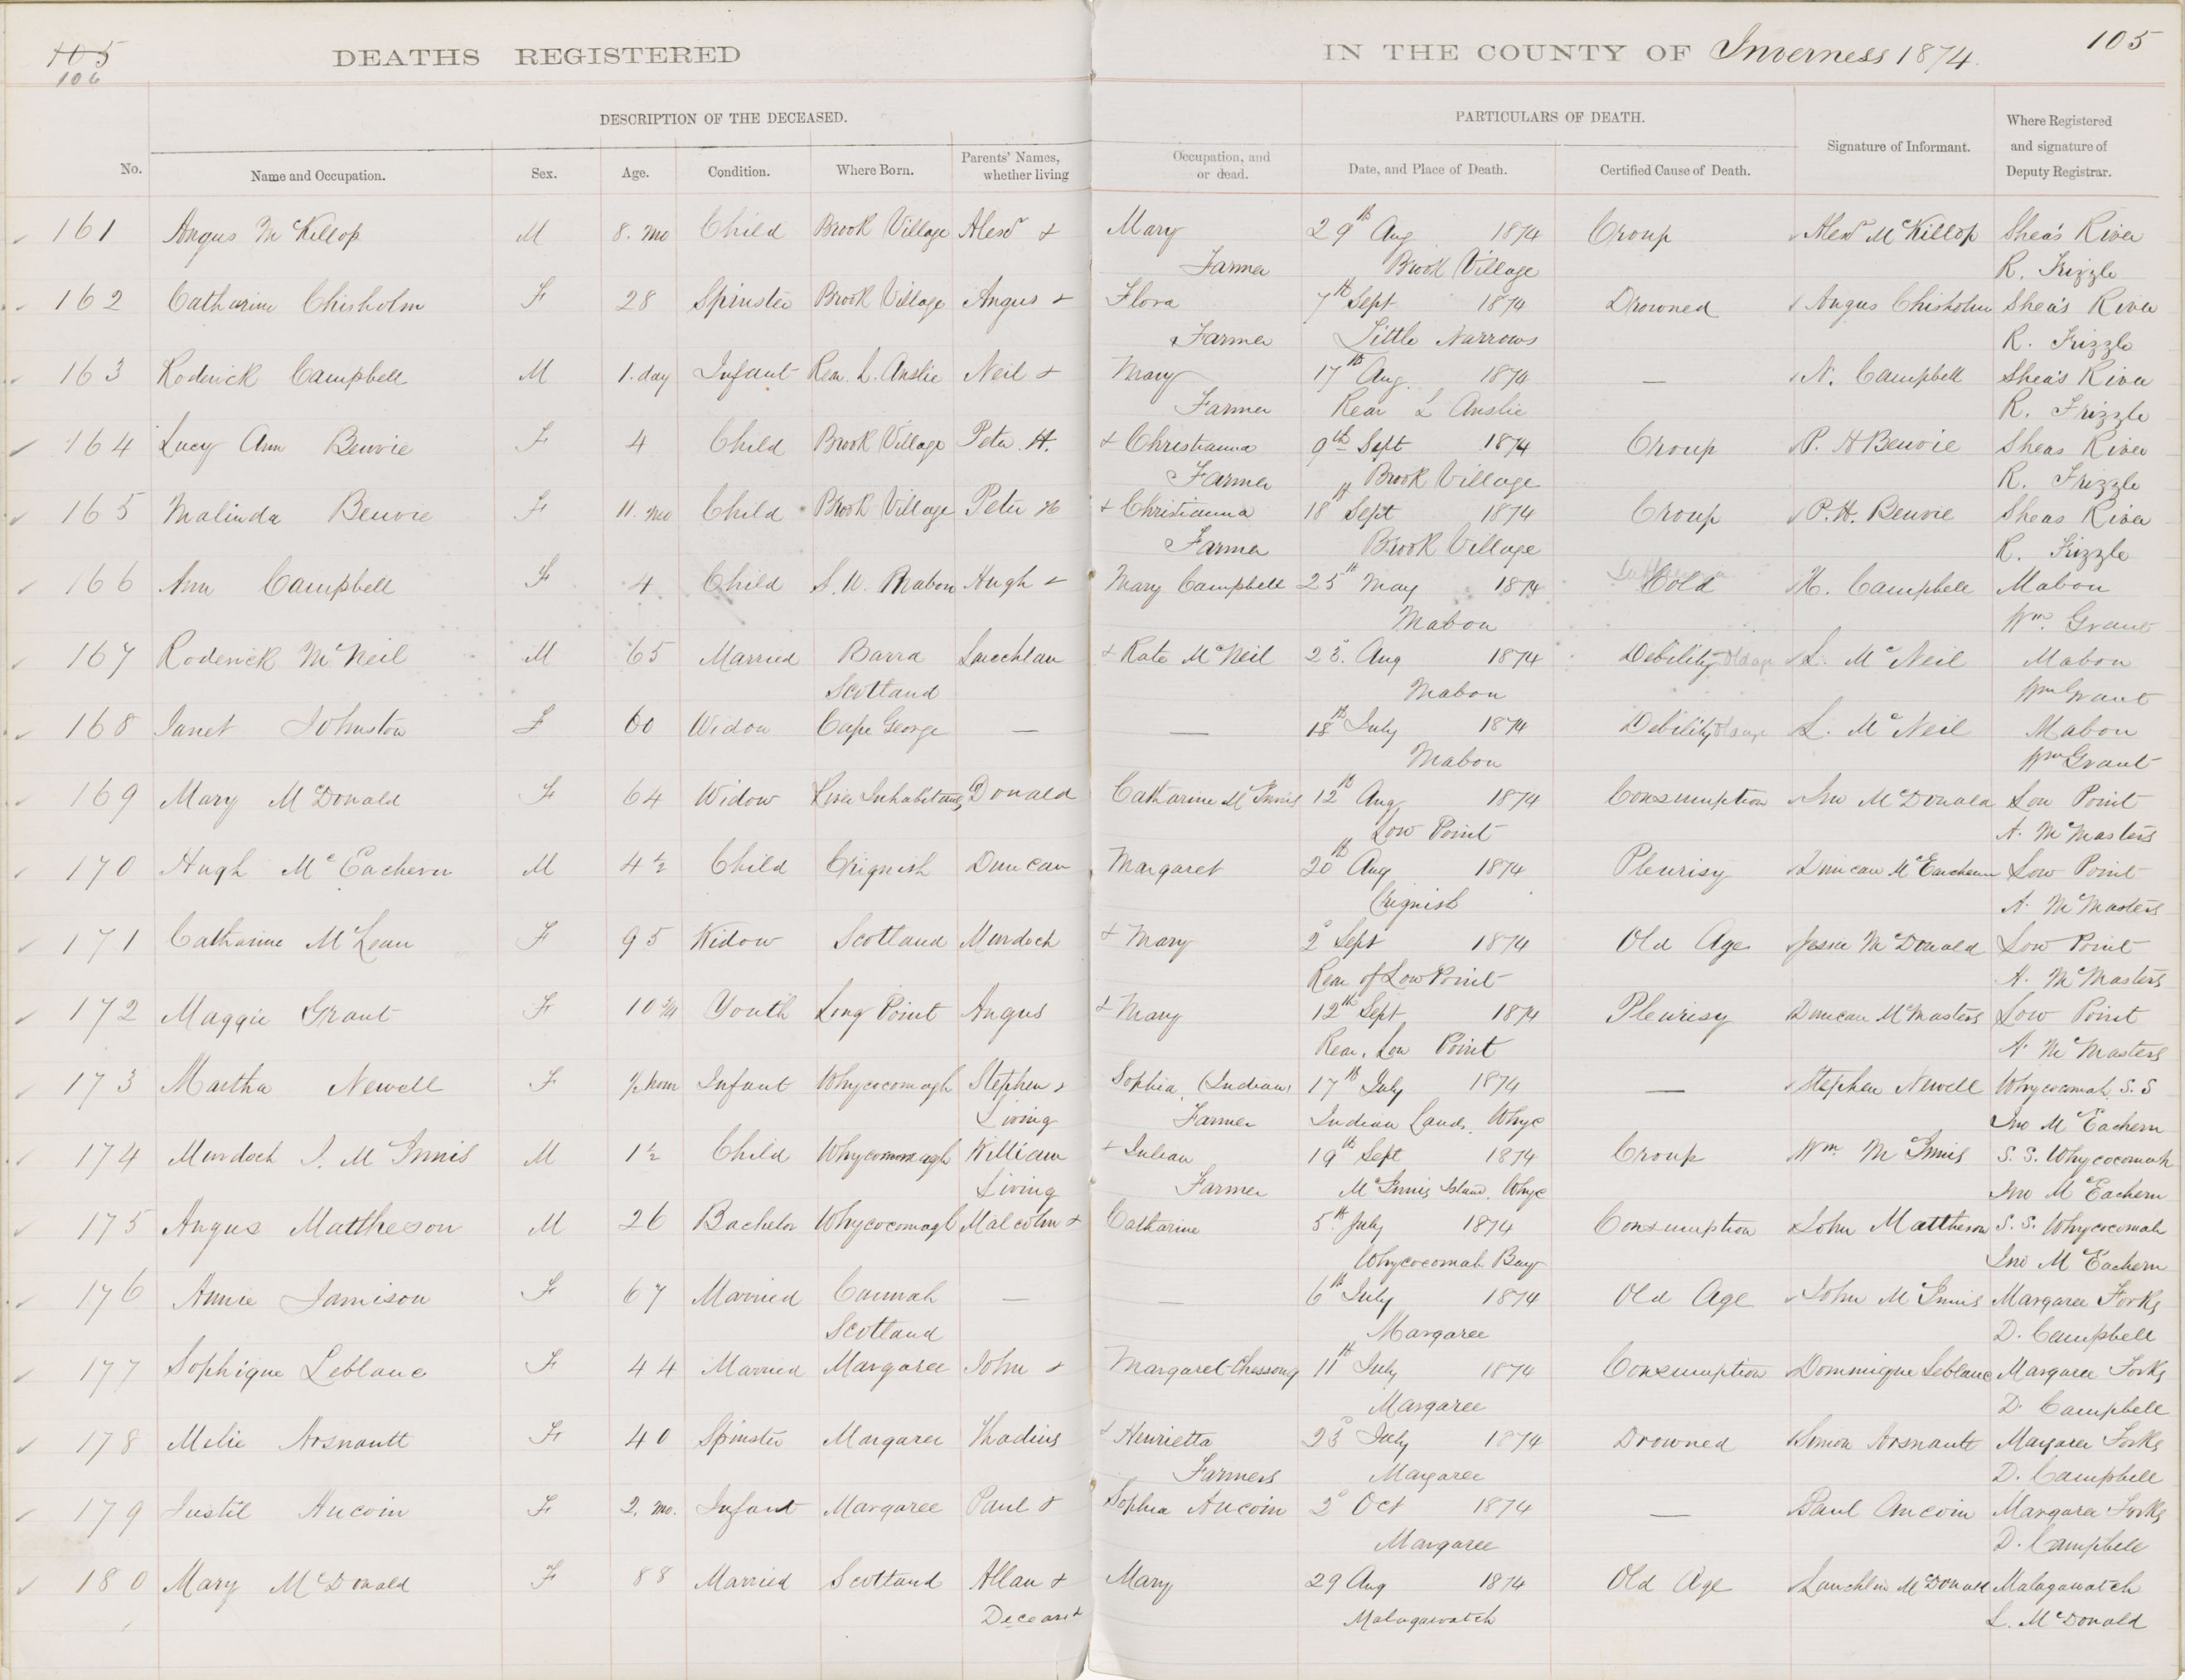 105
106
DEATHS REGISTERED IN THE COUNTY OF Inverness 1874. 105
DESCRIPTION OF THE DECEASED. PARTICULARS OF DEATH.
No. Name and Occupation. Sex. Age. Condition. Where Born. Parents' Names, whether living Occupation, and or dead. Date, and Place of Death. Certified Cause of Death. Signature of Informant. Where Registered and signature of Deputy Registrar.
161 Angus McKillop M 8. mo Child Brook Village Alexr & Mary 29th Aug 1874 Croup Alexr McKillop Shea's River
Farmer Brook Village R. Frizzle
162 Catharine Chisholm F 28 Spinster Brook Village Angus & Flora 7th Sept 1874 Drowned Angus Chisholm Shea's River
Farmer Little Narrows R. Frizzle
163 Roderick Campbell M 1. day Infant Rear L. Anslie Neil & Mary 17th Aug. 1874 — N. Campbell Shea's River
Farmer Rear L Anslie R. Frizzle
164 Lucy Ann Benvie F 4 Child Brook Village Peter H. & Christianna 9th Sept 1874 Croup P. H Benvie Sheas River
Farmer Brook Village R. Frizzle
165 Malinda Benvie F 11. mo Child Brook Village Peter H & Christianna 18th Sept 1874 Croup P. H. Benvie Sheas River
Farmer Brook Village R. Frizzle
166 Ann Campbell F 4 Child S. W. Mabou Hugh & Mary Campbell 25th May 1874 Cold H. Campbell Mabou
Mabou Wm. Grant
167 Roderick McNeil M 65 Married Barra Laechlan & Kate McNeil 23. Aug 1874 Debility Old age L. McNeil Mabou
Scotland Mabou Wm Grant
168 Janet Johnston F 60 Widow Cape George — — 18th July 1874 Debility Old age L. McNeil Mabou
Mabou Wm Grant
169 Mary McDonald F 64 Widow River Inhabitants Donald Catharine McInnis 12th Aug 1874 Consumption Jno McDonald Low Point
Low Point A. McMasters
170 Hugh McEachern M 4½ Child Crignish Duncan Margaret 20th Aug 1874 Pleurisy Duncan McEachern Low Point
Crignish A. McMasters
171 Catharine McLean F 95 Widow Scotland Murdoch & Mary 2d Sept 1874 Old Age Jessie McDonald Low Point
Rear of Low Point A. McMasters
172 Maggie Grant F 10 Youth Long Point Angus & Mary 12th Sept 1874 Pleurisy Duncan McMasters Low Point
Rear. Low Point A McMasters
173 Martha Newell F ½ hour Infant Whycocomagh Stephen & Sophia (Indian) 17th July 1874 — Stephen Newell Whycocomah S. S
Living Farmer Indian Lands. Whyc Jno McEachern
174 Murdoch J. McInnis M 1½ Child Whycocomagh William & Julian 19th Sept 1874 Croup Wm McInnis S. S. Whycocomah
Living Farmer McInnis Island. Whyc Jno McEachern
175 Angus Mattheson M 26 Bachelor Whycocomagh Malcolm & Catharine 5th July 1874 Consumption John Mattheson S. S. Whycocomah
Whycocomah Bay Jno McEachern
176 Annie Jamison F 67 Married Cannah — — 6th July 1874 Old Age John McInnis Margaree Forks
Scotland Margaree D. Campbell
177 Sophique Leblanc F 44 Married Margaree John & Margaret Chessong 11th July 1874 Consumption Dominique Leblanc Margaree Forks
Margaree D. Campbell
178 Melie Arsnautt F 40 Spinster Margaree Thadius & Henrietta 23d July 1874 Drowned Simon Arsnautt Margaree Forks
Farmers Margaree D. Campbell
179 Justil Aucoin F 2. mo. Infant Margaree Paul & Sophia Aucoin 2d Oct 1874 — Paul Aucoin Margaree Forks
Margaree D. Campbell
180 Mary McDonald F 88 Married Scotland Allan & Mary 29 Aug 1874 Old Age Lauchlin McDonald Malagawatch
Deceasd Malagawatch L. McDonald